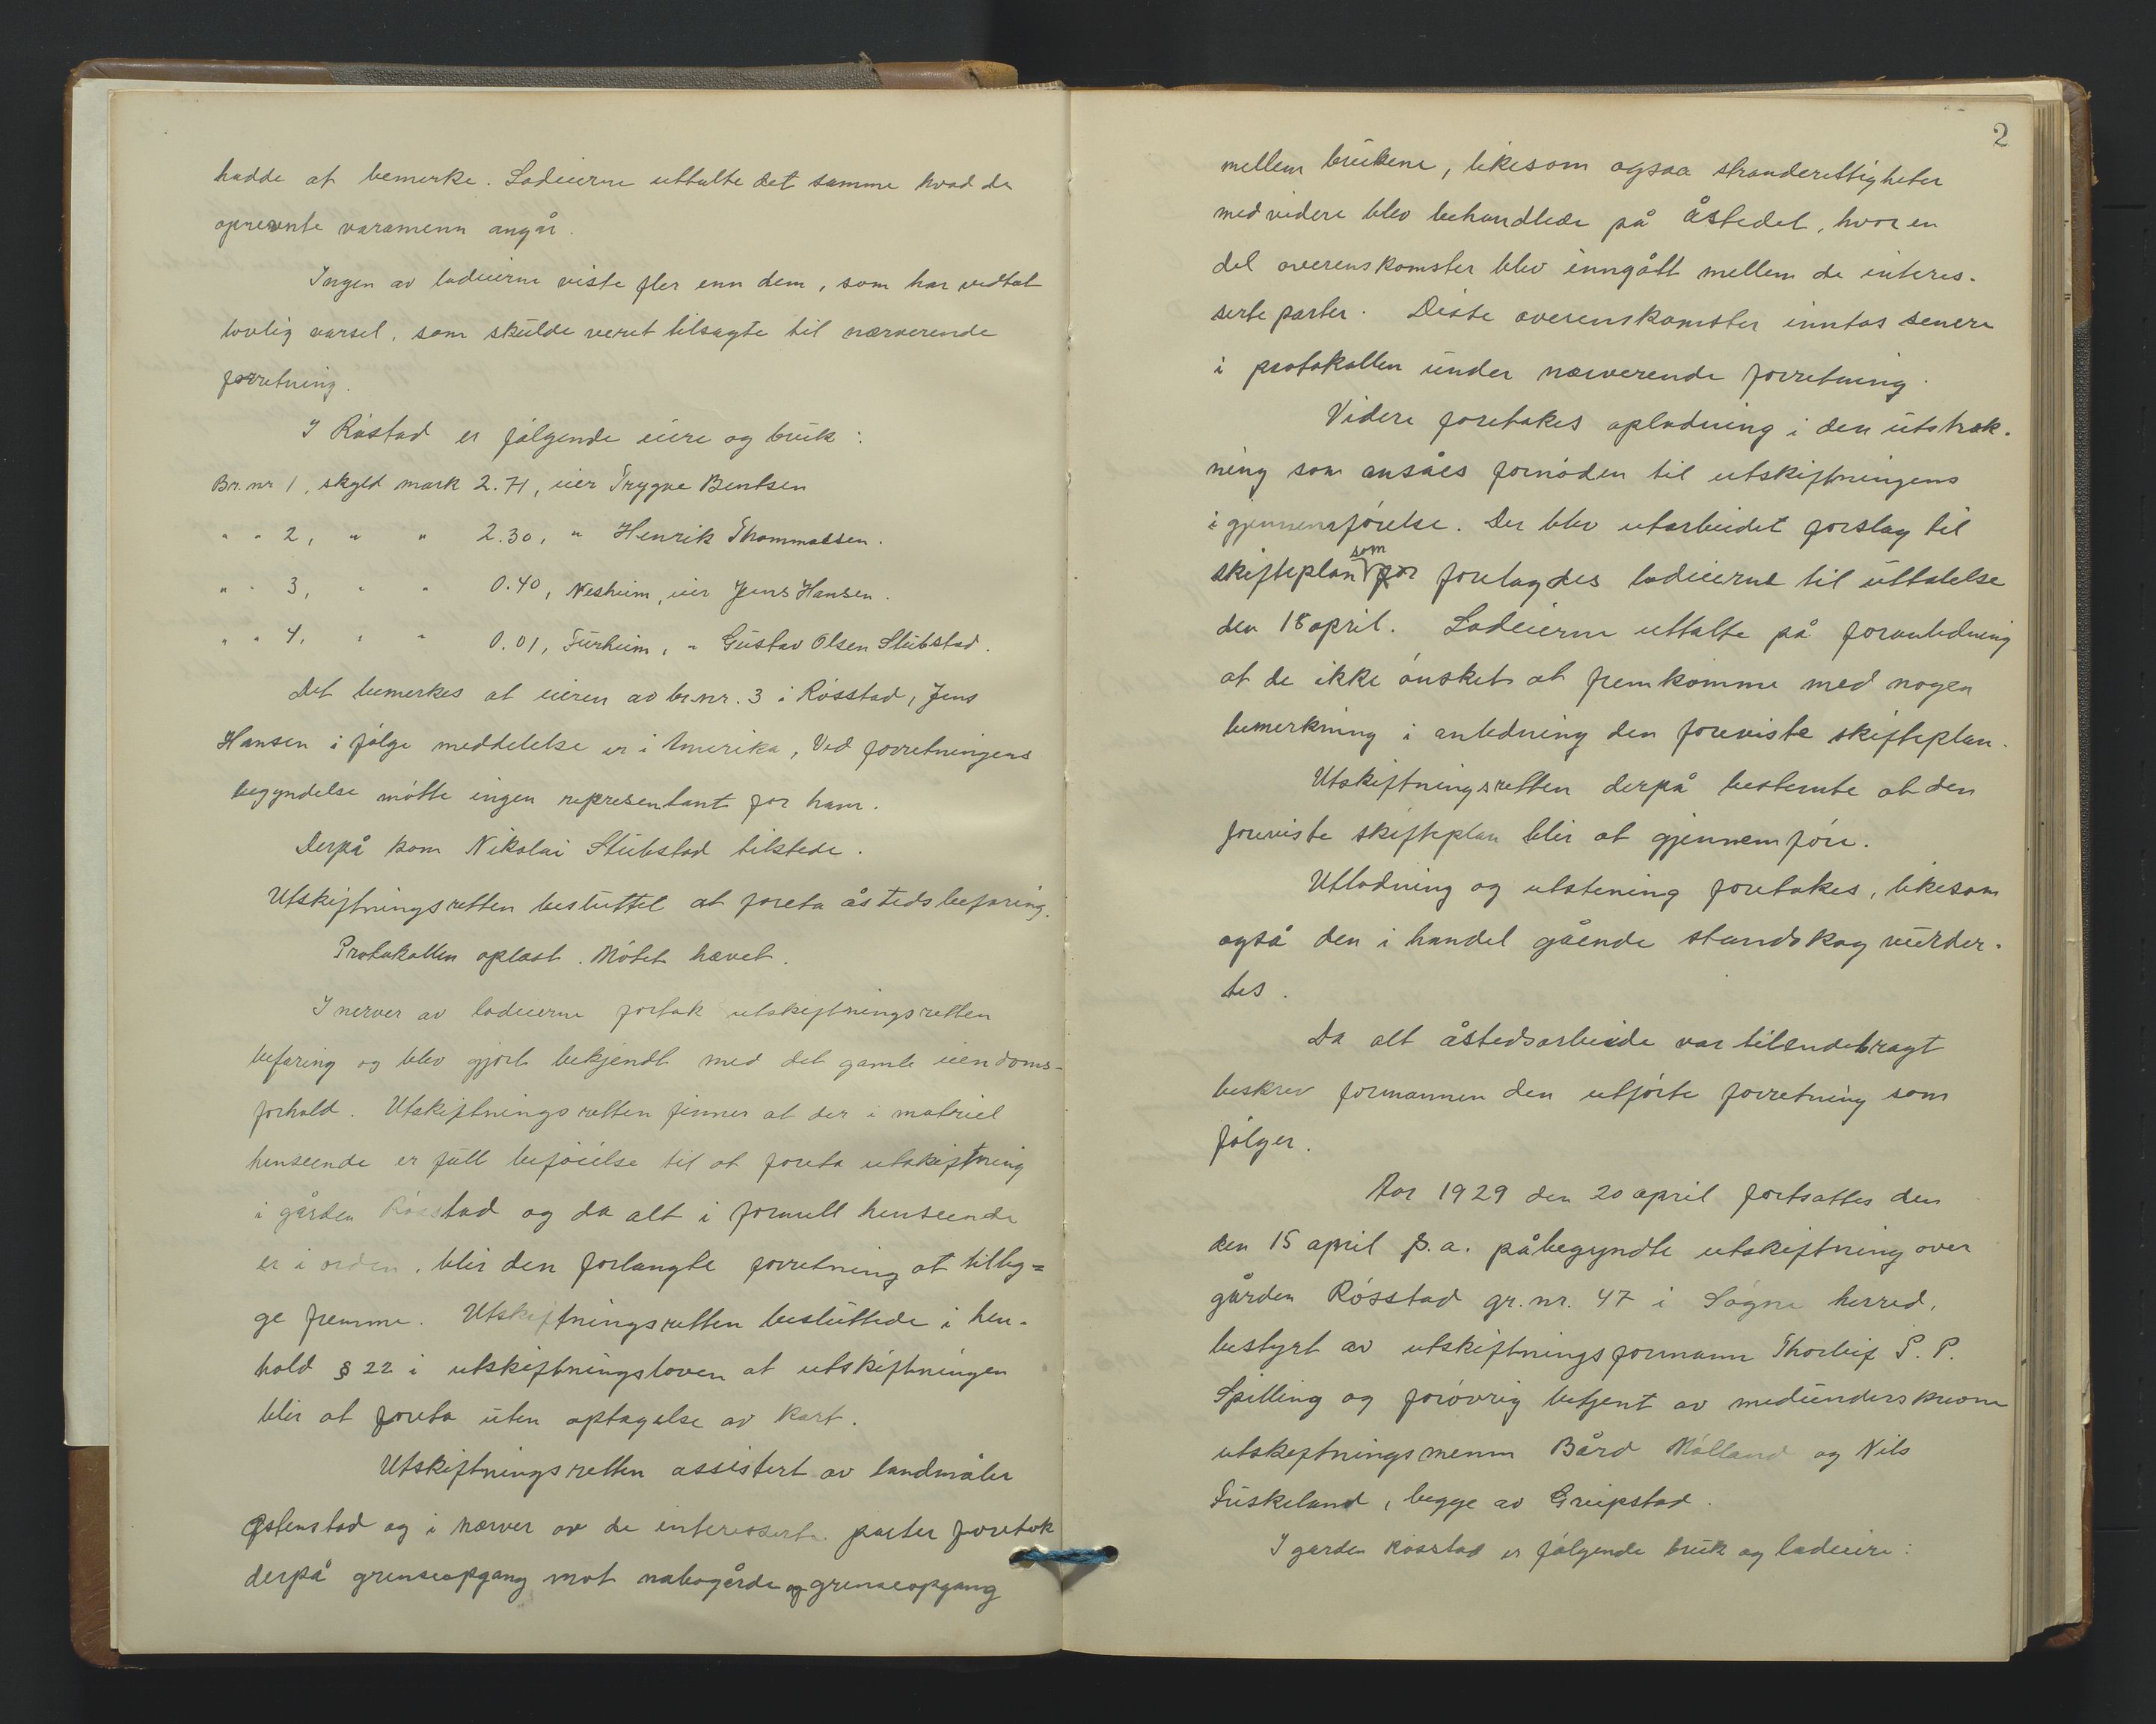 hadde at bemerke. Lodeierne uttalte det samme hvad de
oprevnte varamenn angår.
Ingen av lodeierne viste fler enn dem, som har vedtat
lovlig varsel, som skulde veret tilsagte til nærverende
forretning.
I Røstad er følgende eiere og bruk:
Br. nr 1, skyld mark 2.71, eier Trygve Bentsen
" " 2, " " 2.30, " Henrik Thommassen.
" " 3, " " 0.40, Nesheim, eier Jens Hansen.
" " 4, " " 0.01, Furheim, " Gustav Olsen Stubstad.
Det bemerkes at eieren av br.nr. 3 i Røsstad, Jens
Hansen i følge meddelelse er i Amerika, Ved forretningens
begyndelse møtte ingen representant for ham.
Derpå kom Nikolai Stubstad tilstede.
Utskiftningsretten besluttet at foreta åstedsbefaring.
Protokollen oplæst. Møtet hævet.
I nerver av lodeierne fortok utskiftningsretten
befaring og blev gjort bekjendt med det gamle eiendoms-
forhold. Utskiftningsretten finner at der i matriel
henseende er full beføielse til at foreta utskiftning
i gården Røsstad og da alt i formell henseende
er i orden, blir den forlangte forretning at tilleg=
ge fremme. Utskiftningsretten besluttede i hen-
hold § 22 i utskiftningsloven at utskiftningen
blir at foreta uten optagelse av kart.
Utskiftningsretten assistert av landmåler
Østenstad og i nærver av de interesserte parter foretok
derpå grenseopgang mot nabogårde og grenseopgang
2
mellem brukene, likesom ogsaa stranderettigheter
med videre blev behandlede på åstedet, hvor en
del overenskomster blev inngått mellem de interes-
serte parter. Disse overenskomster inntas senere
i protokollen under nærverende forretning.
Videre foretakes oplodning i den utstræk-
ning som ansåes fornøden til utskiftningens
igjennemførelse. Der blev utarbeidet forslag til
skifteplan som for forelagdes lodeierne til uttalelse
den 18 april. Lodeierne uttalte på foranledning
at de ikke ønsket at fremkomme med nogen
bemerkning i anledning den foreviste skifteplan.
Utskiftningsretten derpå bestemte at den
foreviste skifteplan blir at gjennemføre.
Utlodning og utstening foretakes, likesom
også den i handel gående standskog vurder-
tes.
Da alt åstedsarbeide var tilendebragt
beskrev formannen den utførte forretning som
følger.
Aar 1929 den 20 april fortsattes den
den 15 april s.a. påbegyndte utskiftning over
gården Røsstad gr. nr. 47 i Søgne herred,
bestyrt av utskiftningsformann Thorleif P. P.
Spilling og forøvrig betjent av medunderskrevne
utskiftningsmenn Bård Mølland og Nils
Tuskeland, begge av Greipstad.
I gården Røsstad er følgende bruk og lodeiere: